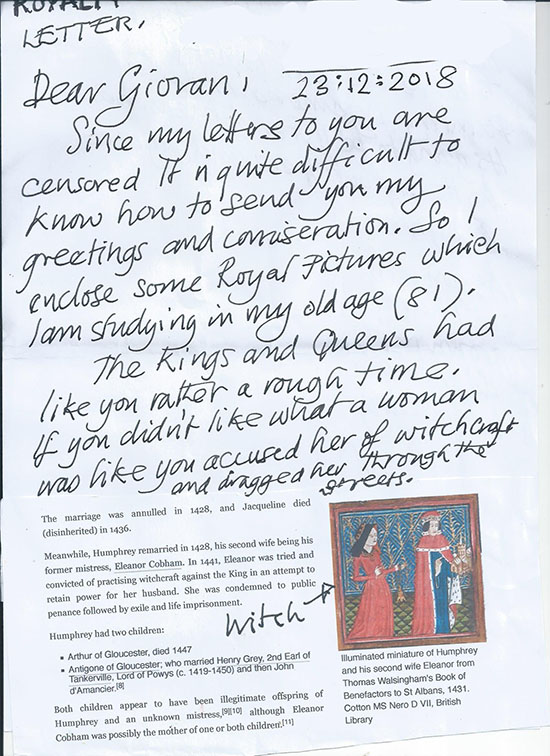 ROYALTY
LETTER.
Dear Gioran, 23:12:2018
Since my letters to you are
censored It is quite difficult to
know how to send you my
greetings and comiseration. So I
enclose some Royal Pictures which
I am studying in my old age (81).
The Kings and Queens had
like you rather a rough time.
If you didn't like what a woman
was like you accused her of witchcraft
and dragged her through the
streets.
The marriage was annulled in 1428, and Jacqueline died
(disinherited) in 1436.
Meanwhile, Humphrey remarried in 1428, his second wife being his
former mistress, Eleanor Cobham. In 1441, Eleanor was tried and
convicted of practising witchcraft against the King in an attempt to
retain power for her husband. She was condemned to public
penance followed by exile and life imprisonment.
Witch →
Humphrey had two children:
• Arthur of Gloucester, died 1447
• Antigone of Gloucester; who married Henry Grey, 2nd Earl of
Tankerville, Lord of Powys (c. 1419-1450) and then John
d'Amancier.[8]
Both children appear to have been illegitimate offspring of
Humphrey and an unknown mistress,[9][10] although Eleanor
Cobham was possibly the mother of one or both children.[11]
Illuminated miniature of Humphrey
and his second wife Eleanor from
Thomas Walsingham's Book of
Benefactors to St Albans, 1431.
Cotton MS Nero D VII, British
Library